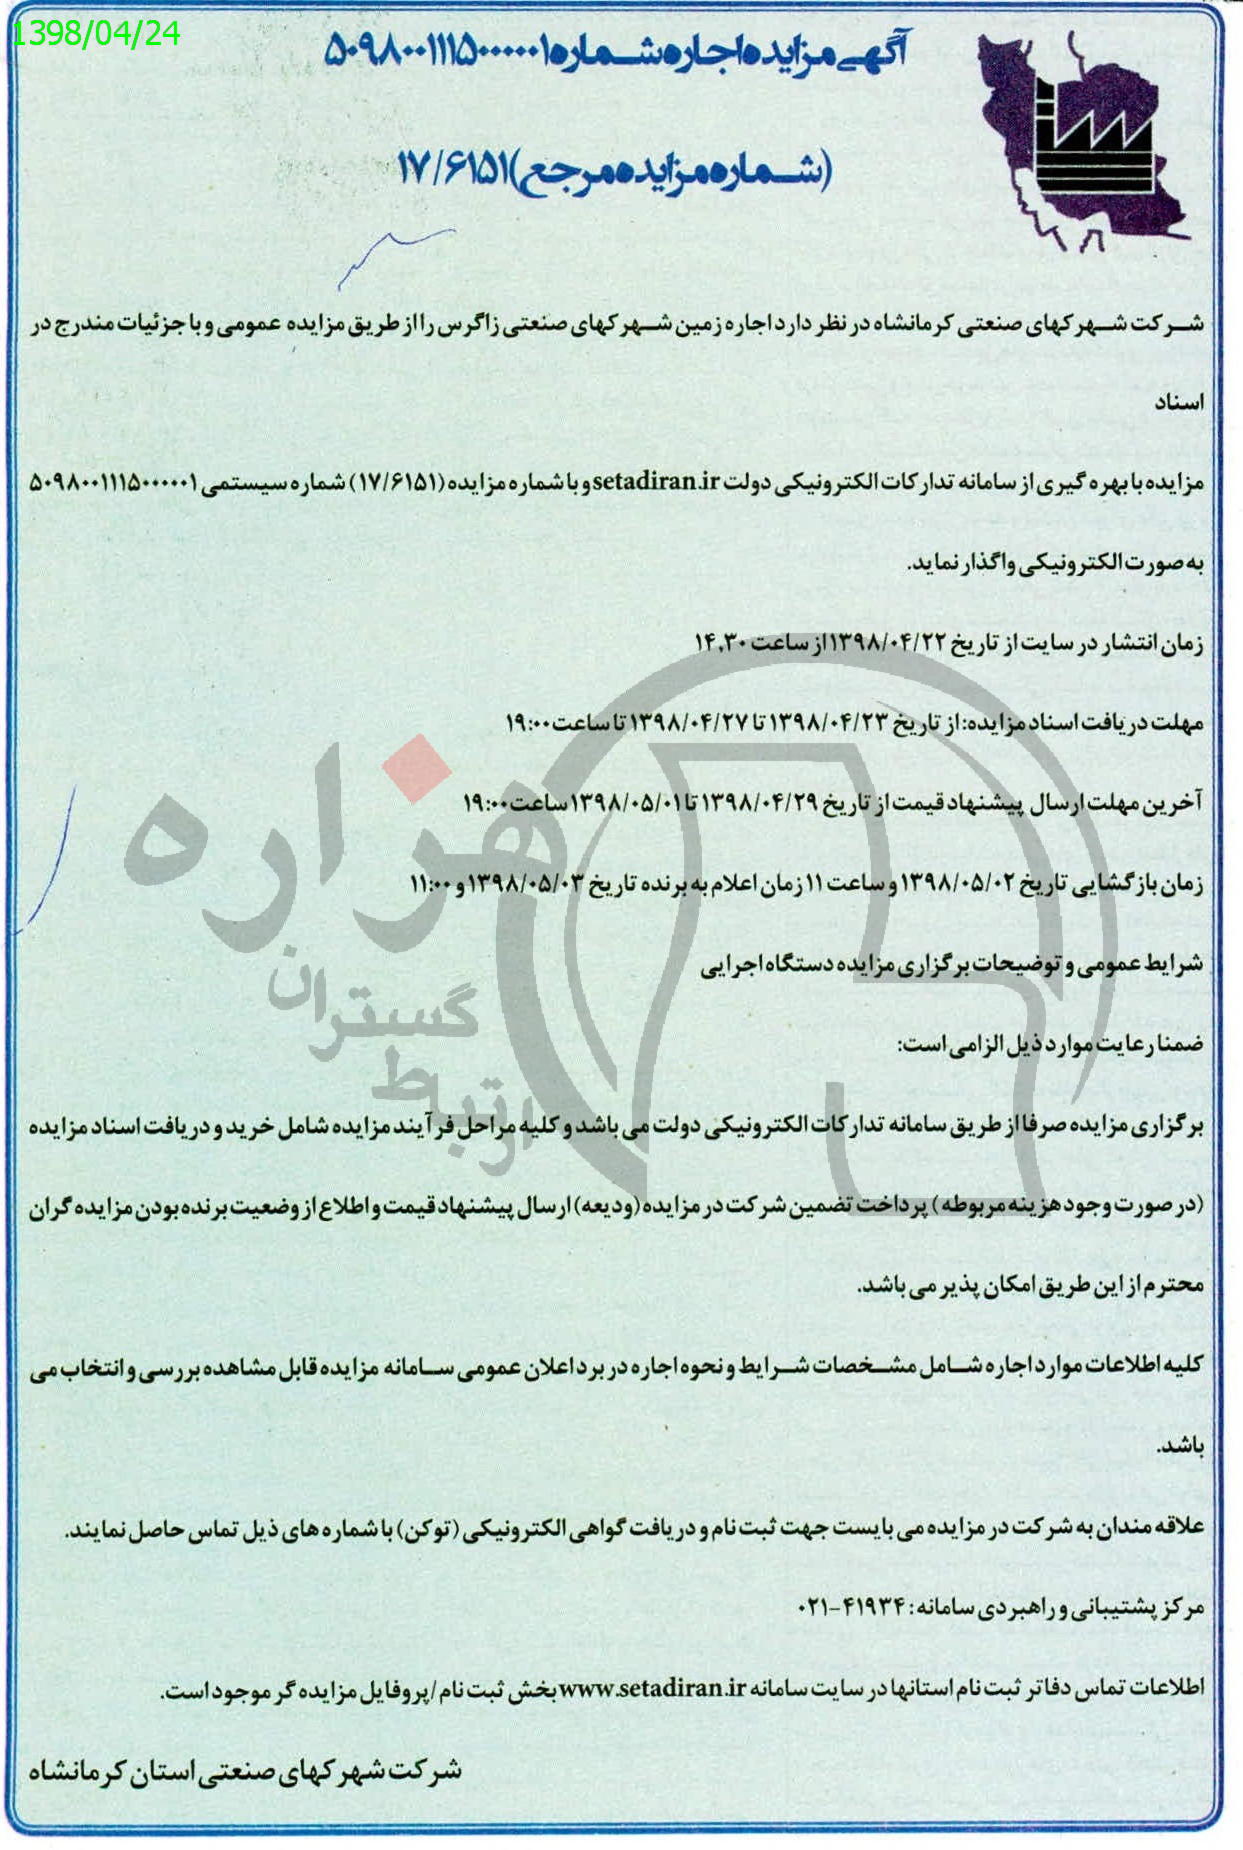 1398/04/24
آگهی مزایده اجاره شماره ۵۰۹۸۰۰۱۱۱۵۰۰۰۰۰۱
(شماره مزایده مرجع) ۱۷/۶۱۵۱
شرکت شهرکهای صنعتی کرمانشاه در نظر دارد اجاره زمین شهرکهای صنعتی زاگرس را از طریق مزایده عمومی و با جزئیات مندرج در
اسناد
مزایده با بهره گیری از سامانه تدارکات الکترونیکی دولت setadiran.ir و با شماره مزایده (۱۷/۶۱۵۱) شماره سیستمی ۵۰۹۸۰۰۱۱۱۵۰۰۰۰۰۱
به صورت الکترونیکی واگذار نماید.
زمان انتشار در سایت از تاریخ ۱۳۹۸/۰۴/۲۲ از ساعت ۱۴.۳۰
مهلت دریافت اسناد مزایده: از تاریخ ۱۳۹۸/۰۴/۲۳ تا ۱۳۹۸/۰۴/۲۷ تا ساعت ۱۹:۰۰
آخرین مهلت ارسال پیشنهاد قیمت از تاریخ ۱۳۹۸/۰۴/۲۹ تا ۱۳۹۸/۰۵/۰۱ ساعت ۱۹:۰۰
زمان بازگشایی تاریخ ۱۳۹۸/۰۵/۰۲ و ساعت ۱۱ زمان اعلام به برنده تاریخ ۱۳۹۸/۰۵/۰۳ و ۱۱:۰۰
شرایط عمومی و توضیحات برگزاری مزایده دستگاه اجرایی
ضمنا رعایت موارد ذیل الزامی است:
برگزاری مزایده صرفا از طریق سامانه تدارکات الکترونیکی دولت می باشد و کلیه مراحل فرآیند مزایده شامل خرید و دریافت اسناد مزایده
(در صورت وجود هزینه مربوطه) پرداخت تضمین شرکت در مزایده (ودیعه) ارسال پیشنهاد قیمت و اطلاع از وضعیت برنده بودن مزایده گران
محترم از این طریق امکان پذیر می باشد.
کلیه اطلاعات موارد اجاره شامل مشخصات شرایط و نحوه اجاره در برد اعلان عمومی سامانه مزایده قابل مشاهده بررسی و انتخاب می
باشد.
علاقه مندان به شرکت در مزایده می بایست جهت ثبت نام و دریافت گواهی الکترونیکی (توکن) با شماره های ذیل تماس حاصل نمایند.
مرکز پشتیبانی و راهبردی سامانه: ۴۱۹۳۴-۰۲۱
اطلاعات تماس دفاتر ثبت نام استانها در سایت سامانه www.setadiran.ir بخش ثبت نام /پروفایل مزایده گر موجود است.
شرکت شهرکهای صنعتی استان کرمانشاه
هزاره
گستران
ارتباط